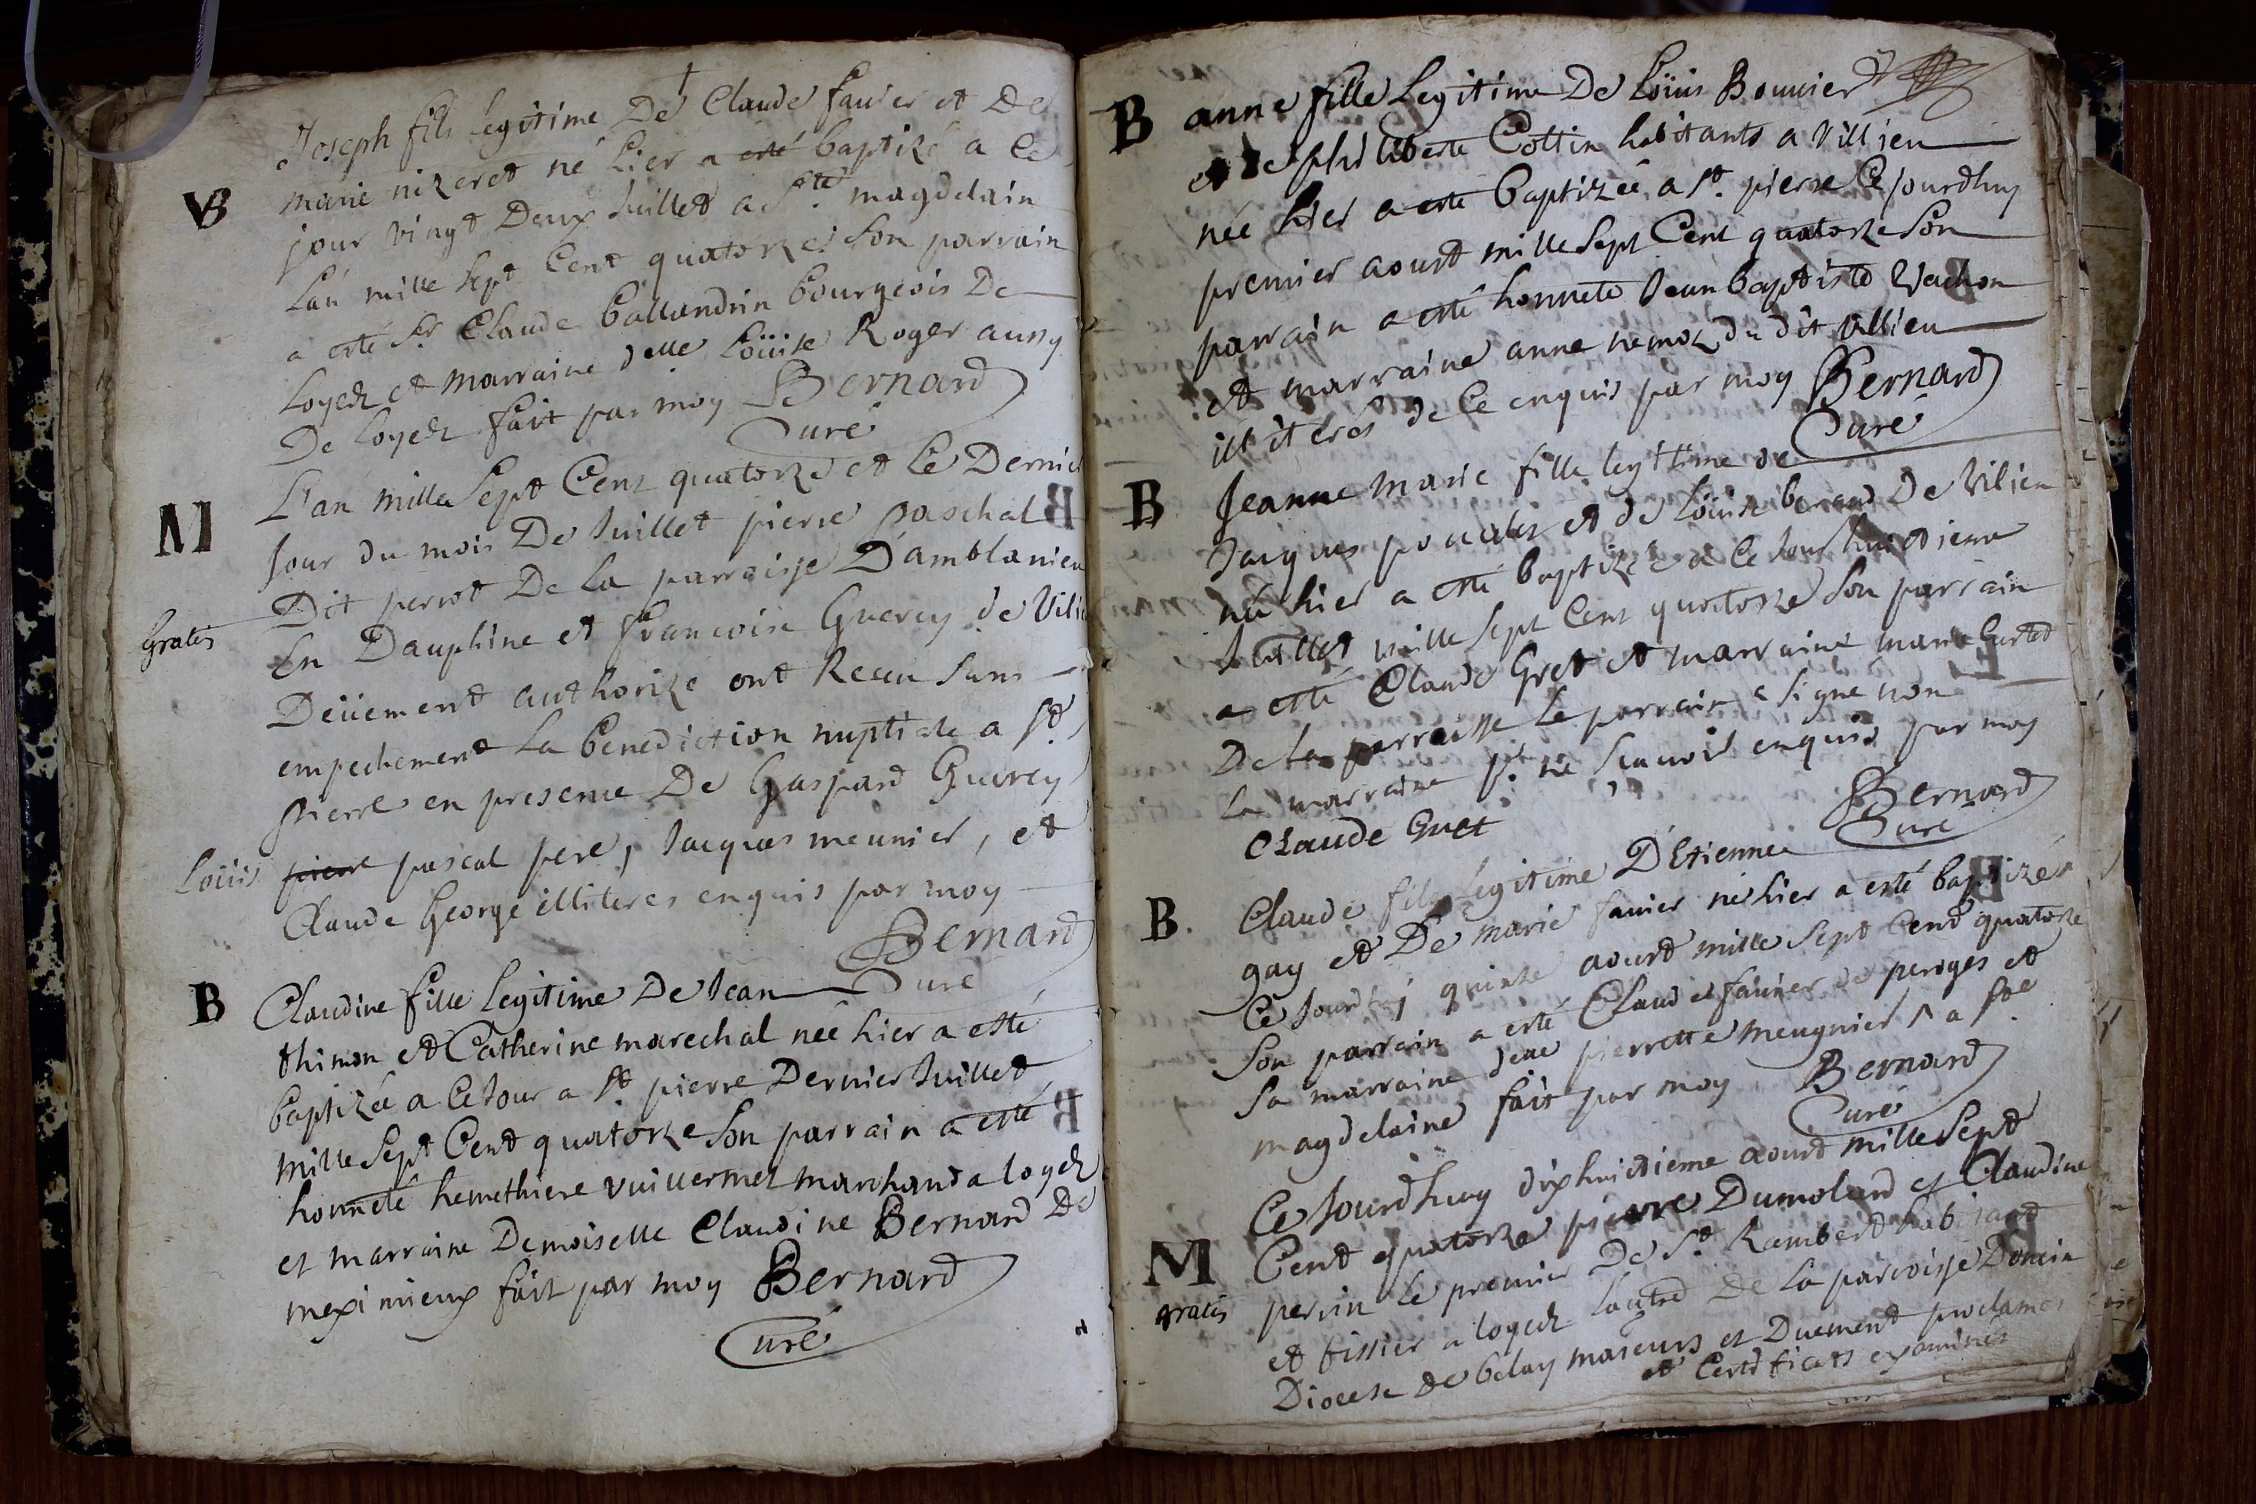 †
Joseph fils legitime De Claude favier et De
B
marie nizeret né hier a esté baptizé a Ce
jour vingt Deux Juillet a Ste. magdelain
L'an mille Sept Cent quatorze Son parrain
a esté Sr Claude Ballandrin bourgeois De
Loyeth et Marraine Delle Loüise Roger aussy
De Loyeth fait par moy Bernard
Curé
M
L'an mille Sept Cent quatorze et le Dernier
Jour du mois De Juillet pierre paschal
Dit perrot De la parroisse D'amblanieu
Gratis
En Dauphine et francoise Guercy de Vilie
Deüement authorizé ont Receu Sans
empechement la benediction nuptiale a St.
pierre en presence De Gaspard Guercy
Loüis
pierre pascal pere, Jacques meunier, et
Claude George illiteres enquis par moy
Bernard
Curé
B
Claudine fille legitime De Jean
thimon et Catherine marechal née hier a esté
baptizée a Ce Jour a St. pierre Dernier Juillet
mille Sept Cent quatorze Son parrain a esté
honneté hemethiere vuillermet marchand a loyeth
et marraine Demoiselle Claudine Bernard De
meximieux fait par moy Bernard
Curé
B
anne fille Legitime De Loüis Bouvier
et De philiberte Cottin habitants a Villieu
née hier a esté baptizée a St. pierre Ce jourdhuy
premier aoust mille Sept Cent quatorze Son
parrain a esté honnete Jean baptiste Vachon
et marraine anne nemoz du dit villieu
illiterés de Ce enquis par moy Bernard
Curé
B
Jeanne Marie fille legitime de
Jacques et de Loüise beraud De Vilieu
né hier a esté baptizée a Ce Jour huictieme
Juillet mille Sept Cent quatorze Son parrain
a esté Claude Gret et marraine marie
De la parroisse Le parrain a signé non
la marraine pr. ne scavoir enquis par moy
Claude Gret
Bernard
Curé
B.
Claude fils legitime D'Etienne
gay et De marie favier né hier a esté baptizé
Ce Jourdhuj quinze aoust mille Sept Cent quatorze
Son parrain a esté Claude favier de peroges et
Sa marraine Delle pierrette meugnier a Ste.
magdelaine fait par moy Bernard
Curé
Ce Jourdhuy dixhuictieme aoust mille Sept
M
Cent quatorze pierre Dumolard et Claudine
gratis
perrin le premier De St. Rambert habitant
et fissier a loyeth lautre De la parroisse Domin
Diocese de belay maieurs et Duement proclamés
et Certificats examinés